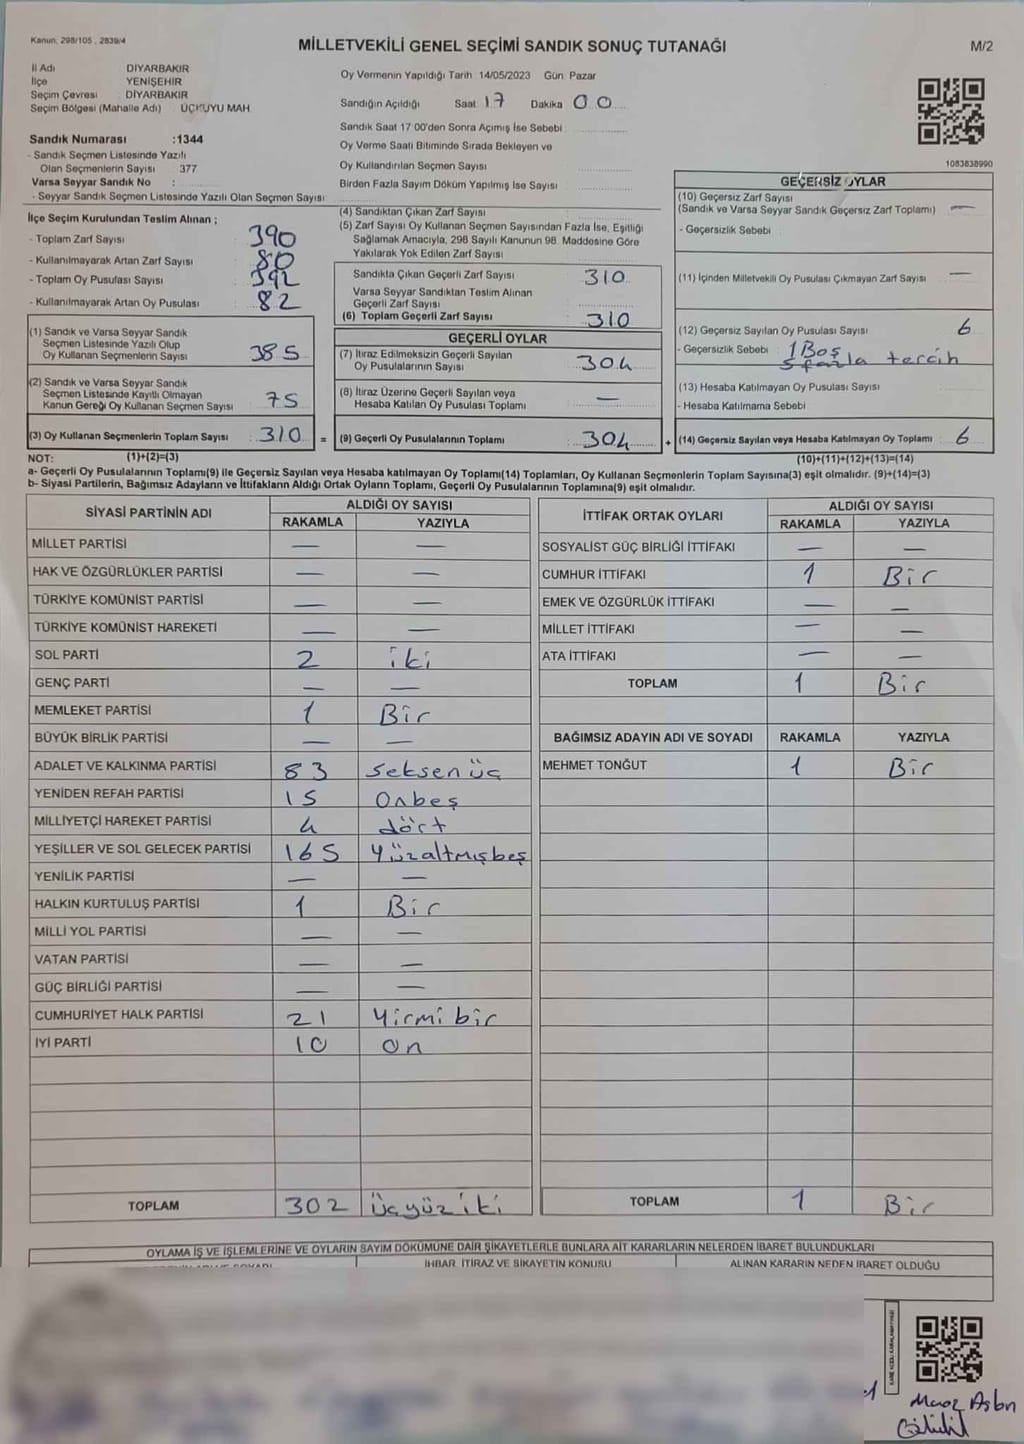 Kanun, 298/105 , 2839/4
MİLLETVEKİLİ GENEL SEÇİMİ SANDIK SONUÇ TUTANAĞI
M/2
İl Adı DİYARBAKIR
İlçe YENİŞEHİR
Seçim Çevresi DİYARBAKIR
Seçim Bölgesi (Mahalle Adı) ÜÇKUYU MAH
Sandık Numarası :1344
- Sandık Seçmen Listesinde Yazılı
Olan Seçmenlerin Sayısı 377
Varsa Seyyar Sandık No :
- Seyyar Sandık Seçmen Listesinde Yazılı Olan Seçmen Sayısı
Oy Vermenin Yapıldığı Tarih 14/05/2023 Gün Pazar
Sandığın Açıldığı Saat 17 Dakika 00
Sandık Saat 17 00'den Sonra Açımış İse Sebebi
Oy Verme Saati Bitiminde Sırada Bekleyen ve
Oy Kullandırılan Seçmen Sayısı
Birden Fazla Sayım Döküm Yapılmış İse Sayısı
1083838990
İlçe Seçim Kurulundan Teslim Alınan ;
- Toplam Zarf Sayısı 390
- Kullanılmayarak Artan Zarf Sayısı 80
- Toplam Oy Pusulası Sayısı 392
- Kullanılmayarak Artan Oy Pusulası 82
(1) Sandık ve Varsa Seyyar Sandık
Seçmen Listesinde Yazılı Olup
Oy Kullanan Seçmenlerin Sayısı 385
(2) Sandık ve Varsa Seyyar Sandık
Seçmen Listesinde Kayıtlı Olmayan
Kanun Gereği Oy Kullanan Seçmen Sayısı 75
(3) Oy Kullanan Seçmenlerin Toplam Sayısı 310 =
(4) Sandıktan Çıkan Zarf Sayısı
(5) Zarf Sayısı Oy Kullanan Seçmen Sayısından Fazla İse, Eşitliği
Sağlamak Amacıyla, 298 Sayılı Kanunun 98. Maddesine Göre
Yakılarak Yok Edilen Zarf Sayısı
Sandıkta Çıkan Geçerli Zarf Sayısı 310
Varsa Seyyar Sandıktan Teslim Alınan
Geçerli Zarf Sayısı
(6) Toplam Geçerli Zarf Sayısı 310
GEÇERLİ OYLAR
(7) İtiraz Edilmeksizin Geçerli Sayılan
Oy Pusulalarının Sayısı 304
(8) İtiraz Üzerine Geçerli Sayılan veya
Hesaba Katılan Oy Pusulası Toplamı —
(9) Geçerli Oy Pusulalarının Toplamı 304 +
GEÇERSİZ OYLAR
(10) Geçersiz Zarf Sayısı
(Sandık ve Varsa Seyyar Sandık Geçersiz Zarf Toplamı) —
- Geçersizlik Sebebi
(11) İçinden Milletvekili Oy Pusulası Çıkmayan Zarf Sayısı —
(12) Geçersiz Sayılan Oy Pusulası Sayısı 6
- Geçersizlik Sebebi : 1 Boş
5 fazla tercih
(13) Hesaba Katılmayan Oy Pusulası Sayısı
- Hesaba Katılmama Sebebi
(14) Geçersiz Sayılan veya Hesaba Katılmayan Oy Toplamı : 6
NOT: (1)+(2)=(3)
(10)+(11)+(12)+(13)=(14)
a- Geçerli Oy Pusulalarının Toplamı(9) ile Geçersiz Sayılan veya Hesaba katılmayan Oy Toplamı(14) Toplamları, Oy Kullanan Seçmenlerin Toplam Sayısına(3) eşit olmalıdır. (9)+(14)=(3)
b- Siyasi Partilerin, Bağımsız Adayların ve İttifakların Aldığı Oyların Toplamı, Geçerli Oy Pusulalarının Toplamına(9) eşit olmalıdır.
SİYASİ PARTİNİN ADI ALDIĞI OY SAYISI
RAKAMLA YAZIYLA
MİLLET PARTİSİ — —
HAK VE ÖZGÜRLÜKLER PARTİSİ — —
TÜRKİYE KOMÜNİST PARTİSİ — —
TÜRKİYE KOMÜNİST HAREKETİ — —
SOL PARTİ 2 iki
GENÇ PARTİ — —
MEMLEKET PARTİSİ 1 Bir
BÜYÜK BİRLİK PARTİSİ — —
ADALET VE KALKINMA PARTİSİ 83 seksen üç
YENİDEN REFAH PARTİSİ 15 Onbeş
MİLLİYETÇİ HAREKET PARTİSİ 4 dört
YEŞİLLER VE SOL GELECEK PARTİSİ 165 Yüzaltmışbeş
YENİLİK PARTİSİ — —
HALKIN KURTULUŞ PARTİSİ 1 Bir
MİLLİ YOL PARTİSİ — —
VATAN PARTİSİ — —
GÜÇ BİRLİĞİ PARTİSİ — —
CUMHURİYET HALK PARTİSİ 21 Yirmi bir
İYİ PARTİ 10 on
TOPLAM 302 üçyüz iki
İTTİFAK ORTAK OYLARI ALDIĞI OY SAYISI
RAKAMLA YAZIYLA
SOSYALİST GÜÇ BİRLİĞİ İTTİFAKI — —
CUMHUR İTTİFAKI 1 Bir
EMEK VE ÖZGÜRLÜK İTTİFAKI — —
MİLLET İTTİFAKI — —
ATA İTTİFAKI — —
TOPLAM 1 Bir
BAĞIMSIZ ADAYIN ADI VE SOYADI RAKAMLA YAZIYLA
MEHMET TONĞUT 1 Bir
TOPLAM 1 Bir
OYLAMA İŞ VE İŞLEMLERİNE VE OYLARIN SAYIM DÖKÜMÜNE DAİR ŞİKAYETLERLE BUNLARA AİT KARARLARIN NELERDEN İBARET BULUNDUKLARI
İHBAR, İTİRAZ VE ŞİKAYETİN KONUSU
ALINAN KARARIN NEDEN İBARET OLDUĞU